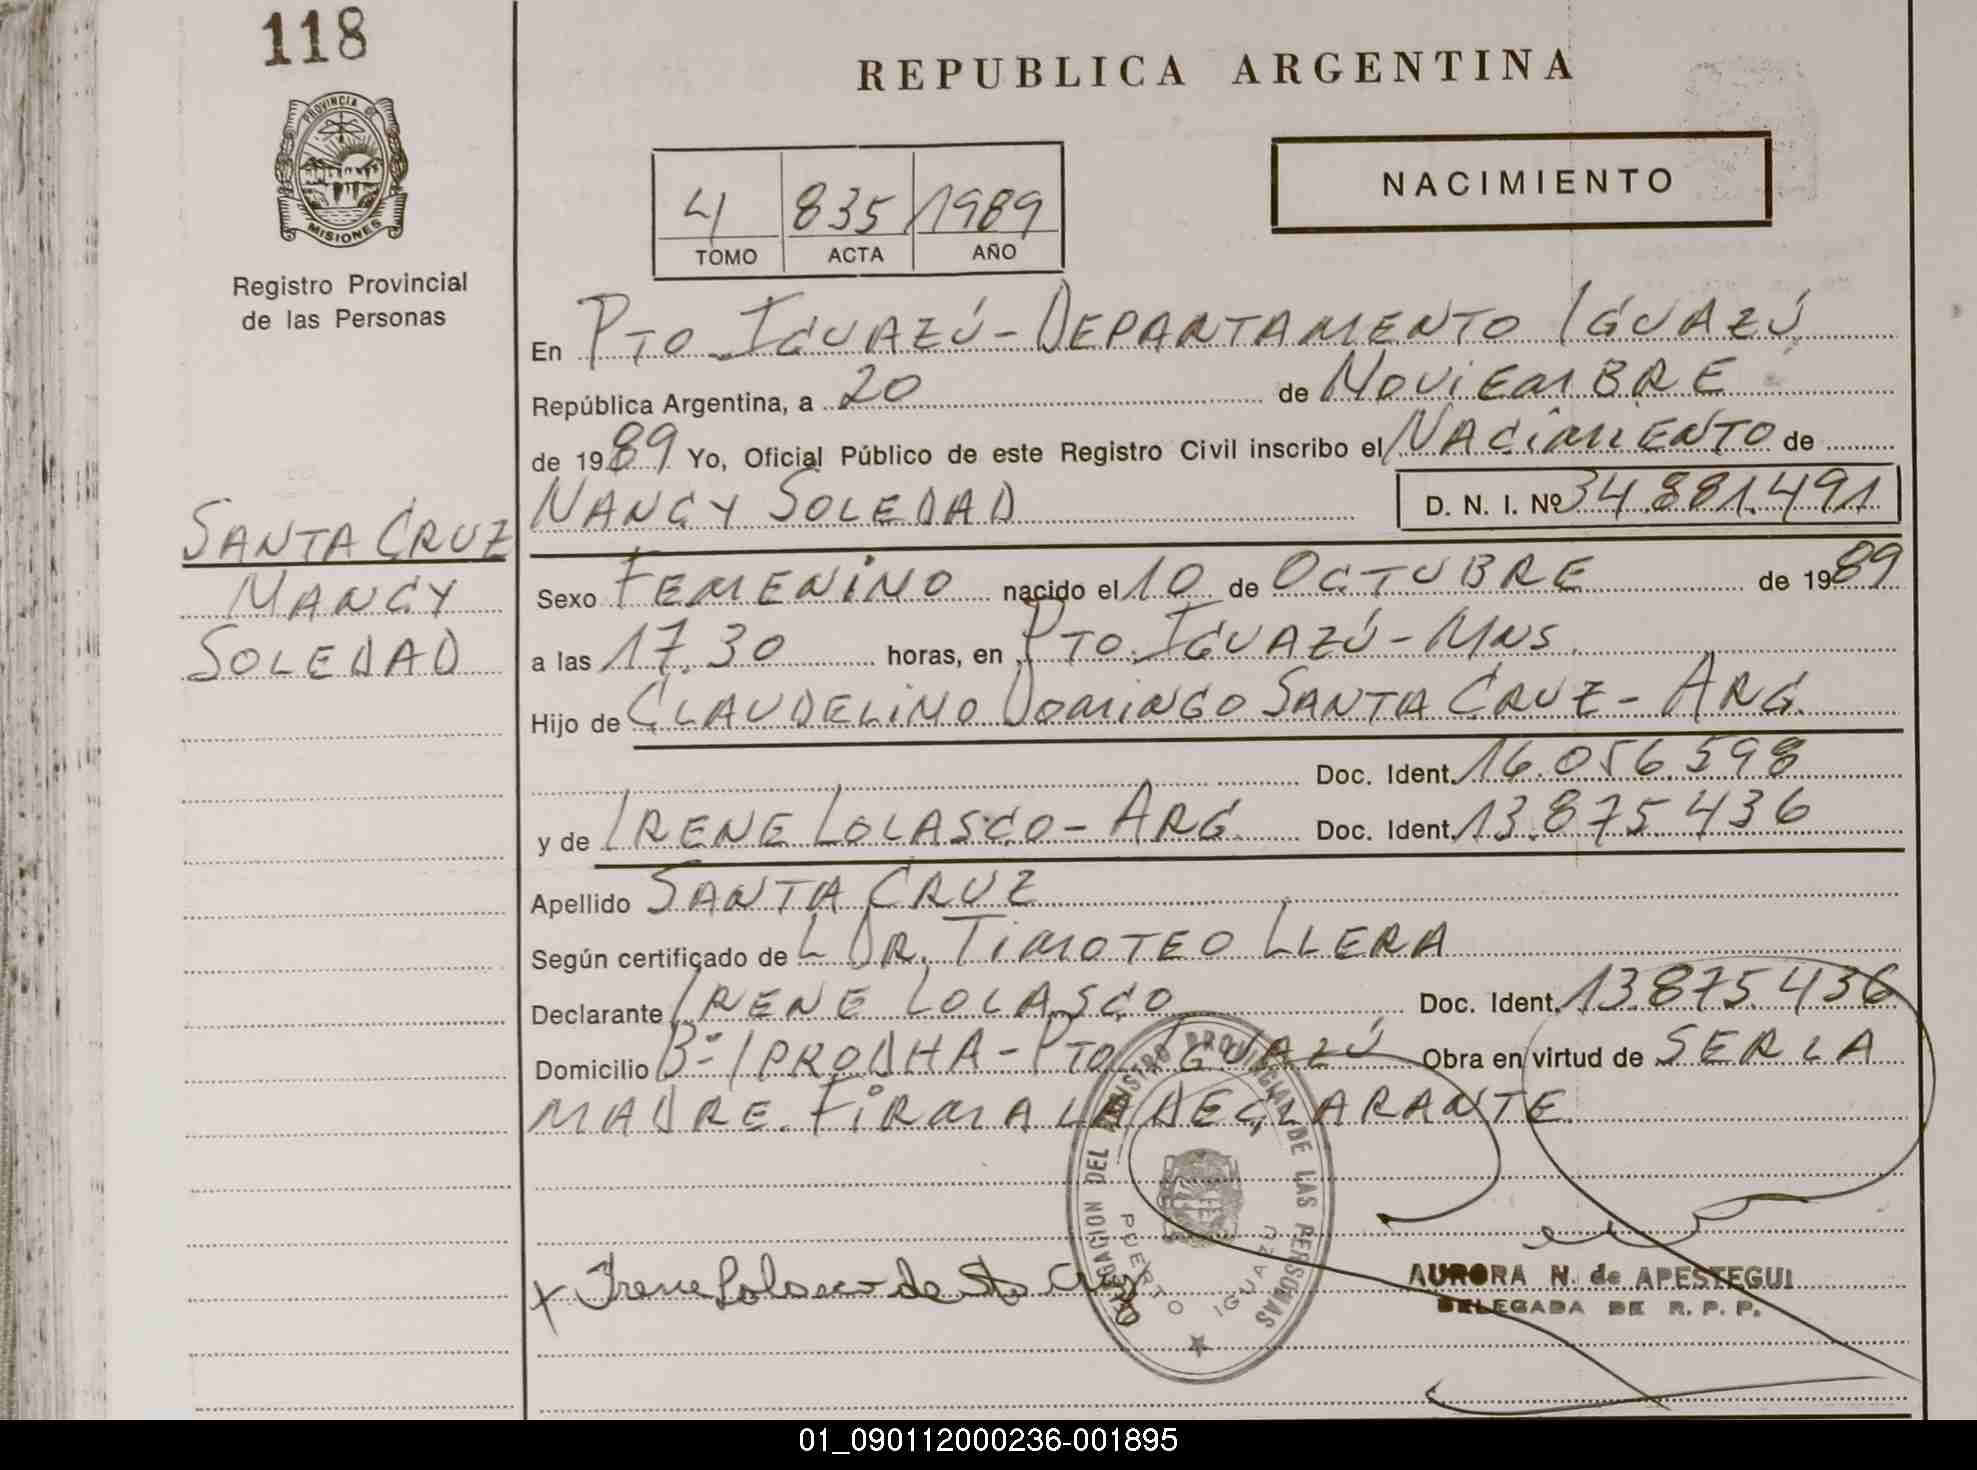 118
REPUBLICA ARGENTINA
PROVINCIA DE
MISIONES
Registro Provincial
de las Personas
4 835 1989
TOMO ACTA AÑO
NACIMIENTO
En PTO IGUAZÚ - DEPARTAMENTO IGUAZÚ
República Argentina, a 20 de NOVIEMBRE
de 1989 Yo, Oficial Público de este Registro Civil inscribo el NACIMIENTO de
NANCY SOLEDAD D. N. I. Nº 34.881.491
SANTA CRUZ
NANCY
SOLEDAD
Sexo FEMENINO nacido el 10 de OCTUBRE de 1989
a las 17.30 horas, en PTO. IGUAZÚ - MNS.
Hijo de CLAUDELINO DOMINGO SANTA CRUZ - ARG.
Doc. Ident. 16.056.598
y de IRENE LOLASCO - ARG. Doc. Ident. 13.875.436
Apellido SANTA CRUZ
Según certificado de L DR. TIMOTEO LLERA
Declarante IRENE LOLASCO Doc. Ident. 13.875.436
Domicilio Bº IPRODHA - PTO IGUAZÚ Obra en virtud de SER LA
MADRE. FIRMA LA DECLARANTE.
DELEGACION DEL REGISTRO PROVINCIAL DE LAS PERSONAS
PUERTO IGUAZU
x Irene Lolasco de Sta Cruz
AURORA N. de APESTEGUI
DELEGADA DE R. P. P.
01_090112000236-001895